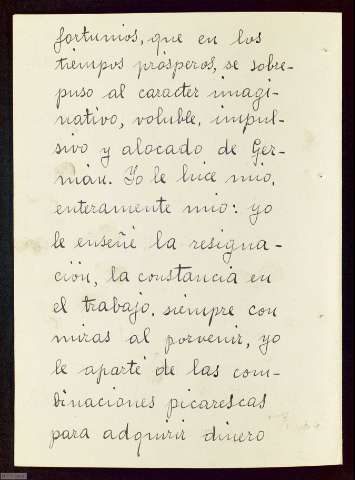 fortunios, que en los
tiempos prósperos, se sobre-
puso al caracter imagi-
nativo, voluble, impul-
sivo y alocado de Ger-
mán. Yo le hice mio,
enteramente mio: yo
le enseñé la resigna-
ción, la constancia en
el trabajo, siempre con
miras al porvenir, yo
le aparté de las com-
binaciones picarescas
para adquirir dinero